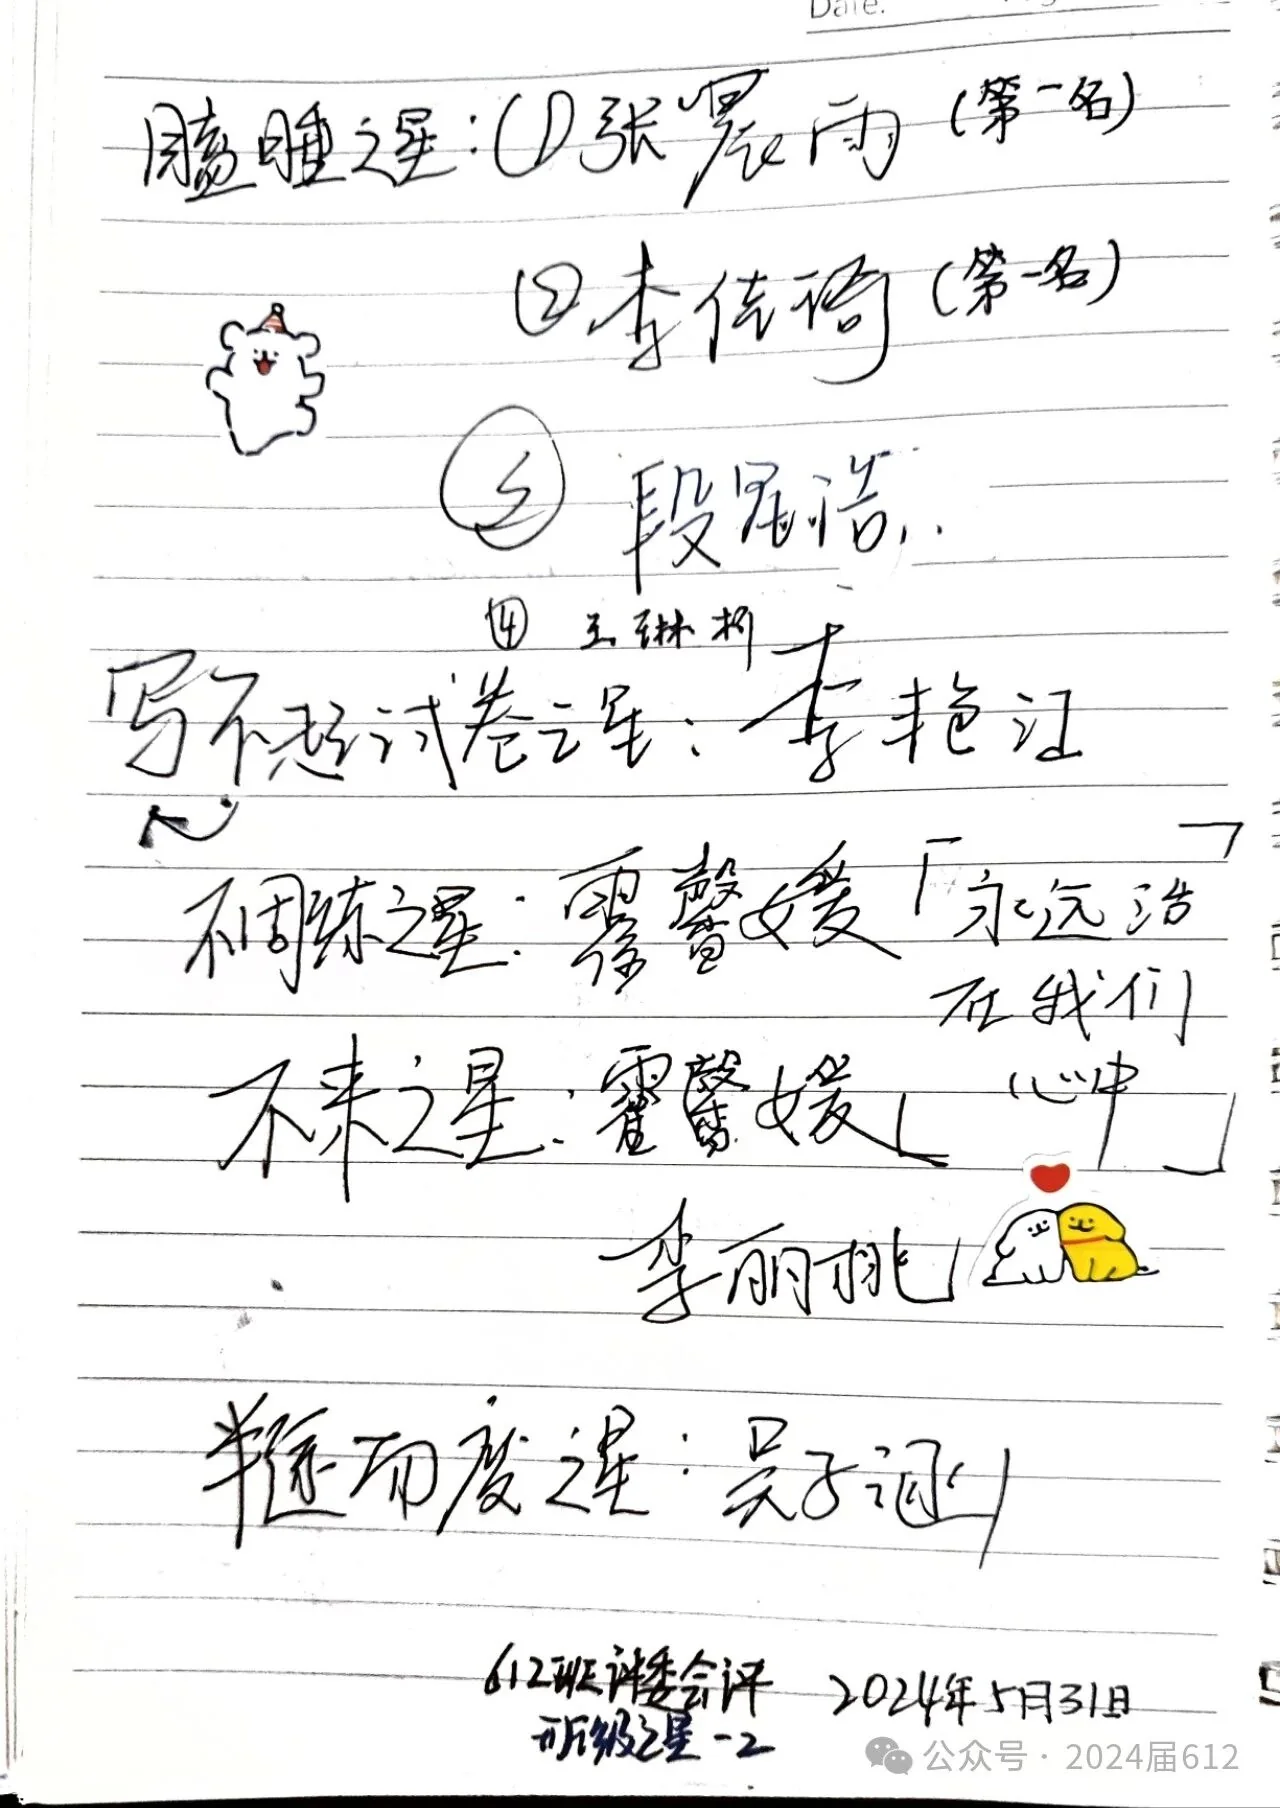 Date.
瞌睡之星：①张晨雨（第一名）
②李佳琦（第一名）
③段居浩..
④王琳柯
写不起试卷之星：李艳汪
不调练之星：霍馨媛「永远活
在我们
不来之星：霍馨媛 心中」
李丽桃
半途而废之星：吴子涵
612班评委会评 2024年5月31日
班级之星-2
公众号·2024届612